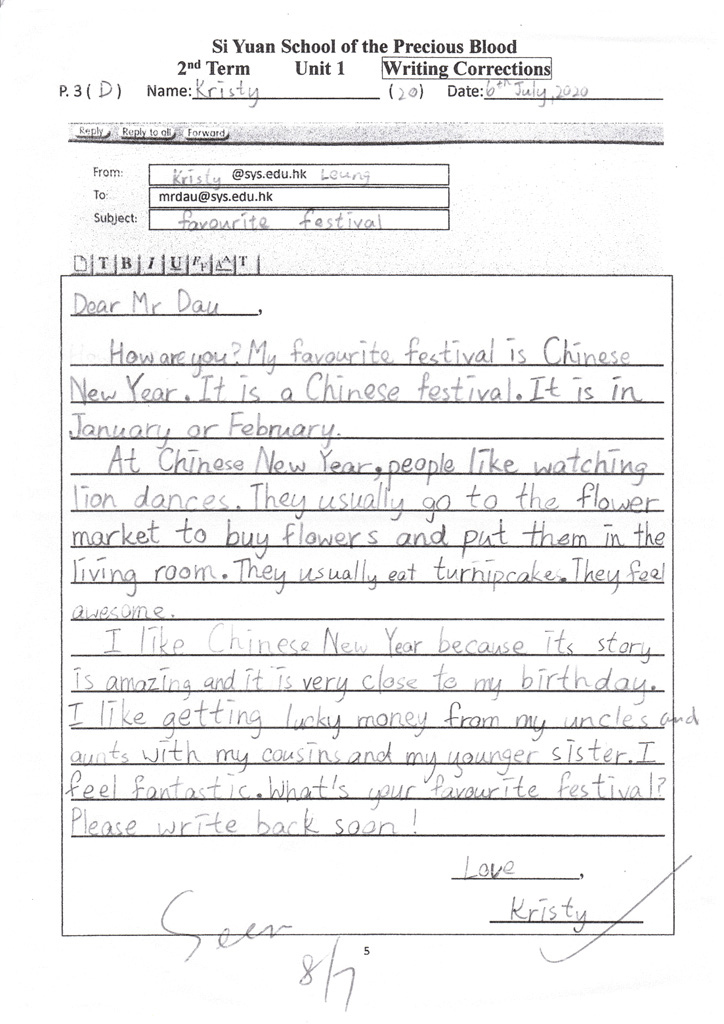 Si Yuan School of the Precious Blood
2nd Term Unit 1 Writing Corrections
P. 3 ( D ) Name: Kristy (20) Date: 6th July, 2020
Reply Reply to all Forward
From: Kristy @sys.edu.hk Leung
To: mrdau@sys.edu.hk
Subject: favourite festival
T B I U F F A A T
Dear Mr Dau ,
How are you? My favourite festival is Chinese
New Year. It is a Chinese festival. It is in
January or February.
At Chinese New Year, people like watching
lion dances. They usually go to the flower
market to buy flowers and put them in the
living room. They usually eat turnipcake. They feel
awesome.
I like Chinese New Year because its story
is amazing and it is very close to my birthday.
I like getting lucky money from my uncles and
aunts with my cousins and my younger sister. I
feel fantastic. What's your favourite festival?
Please write back soon!
Love ,
Kristy
Seen
8/7
5